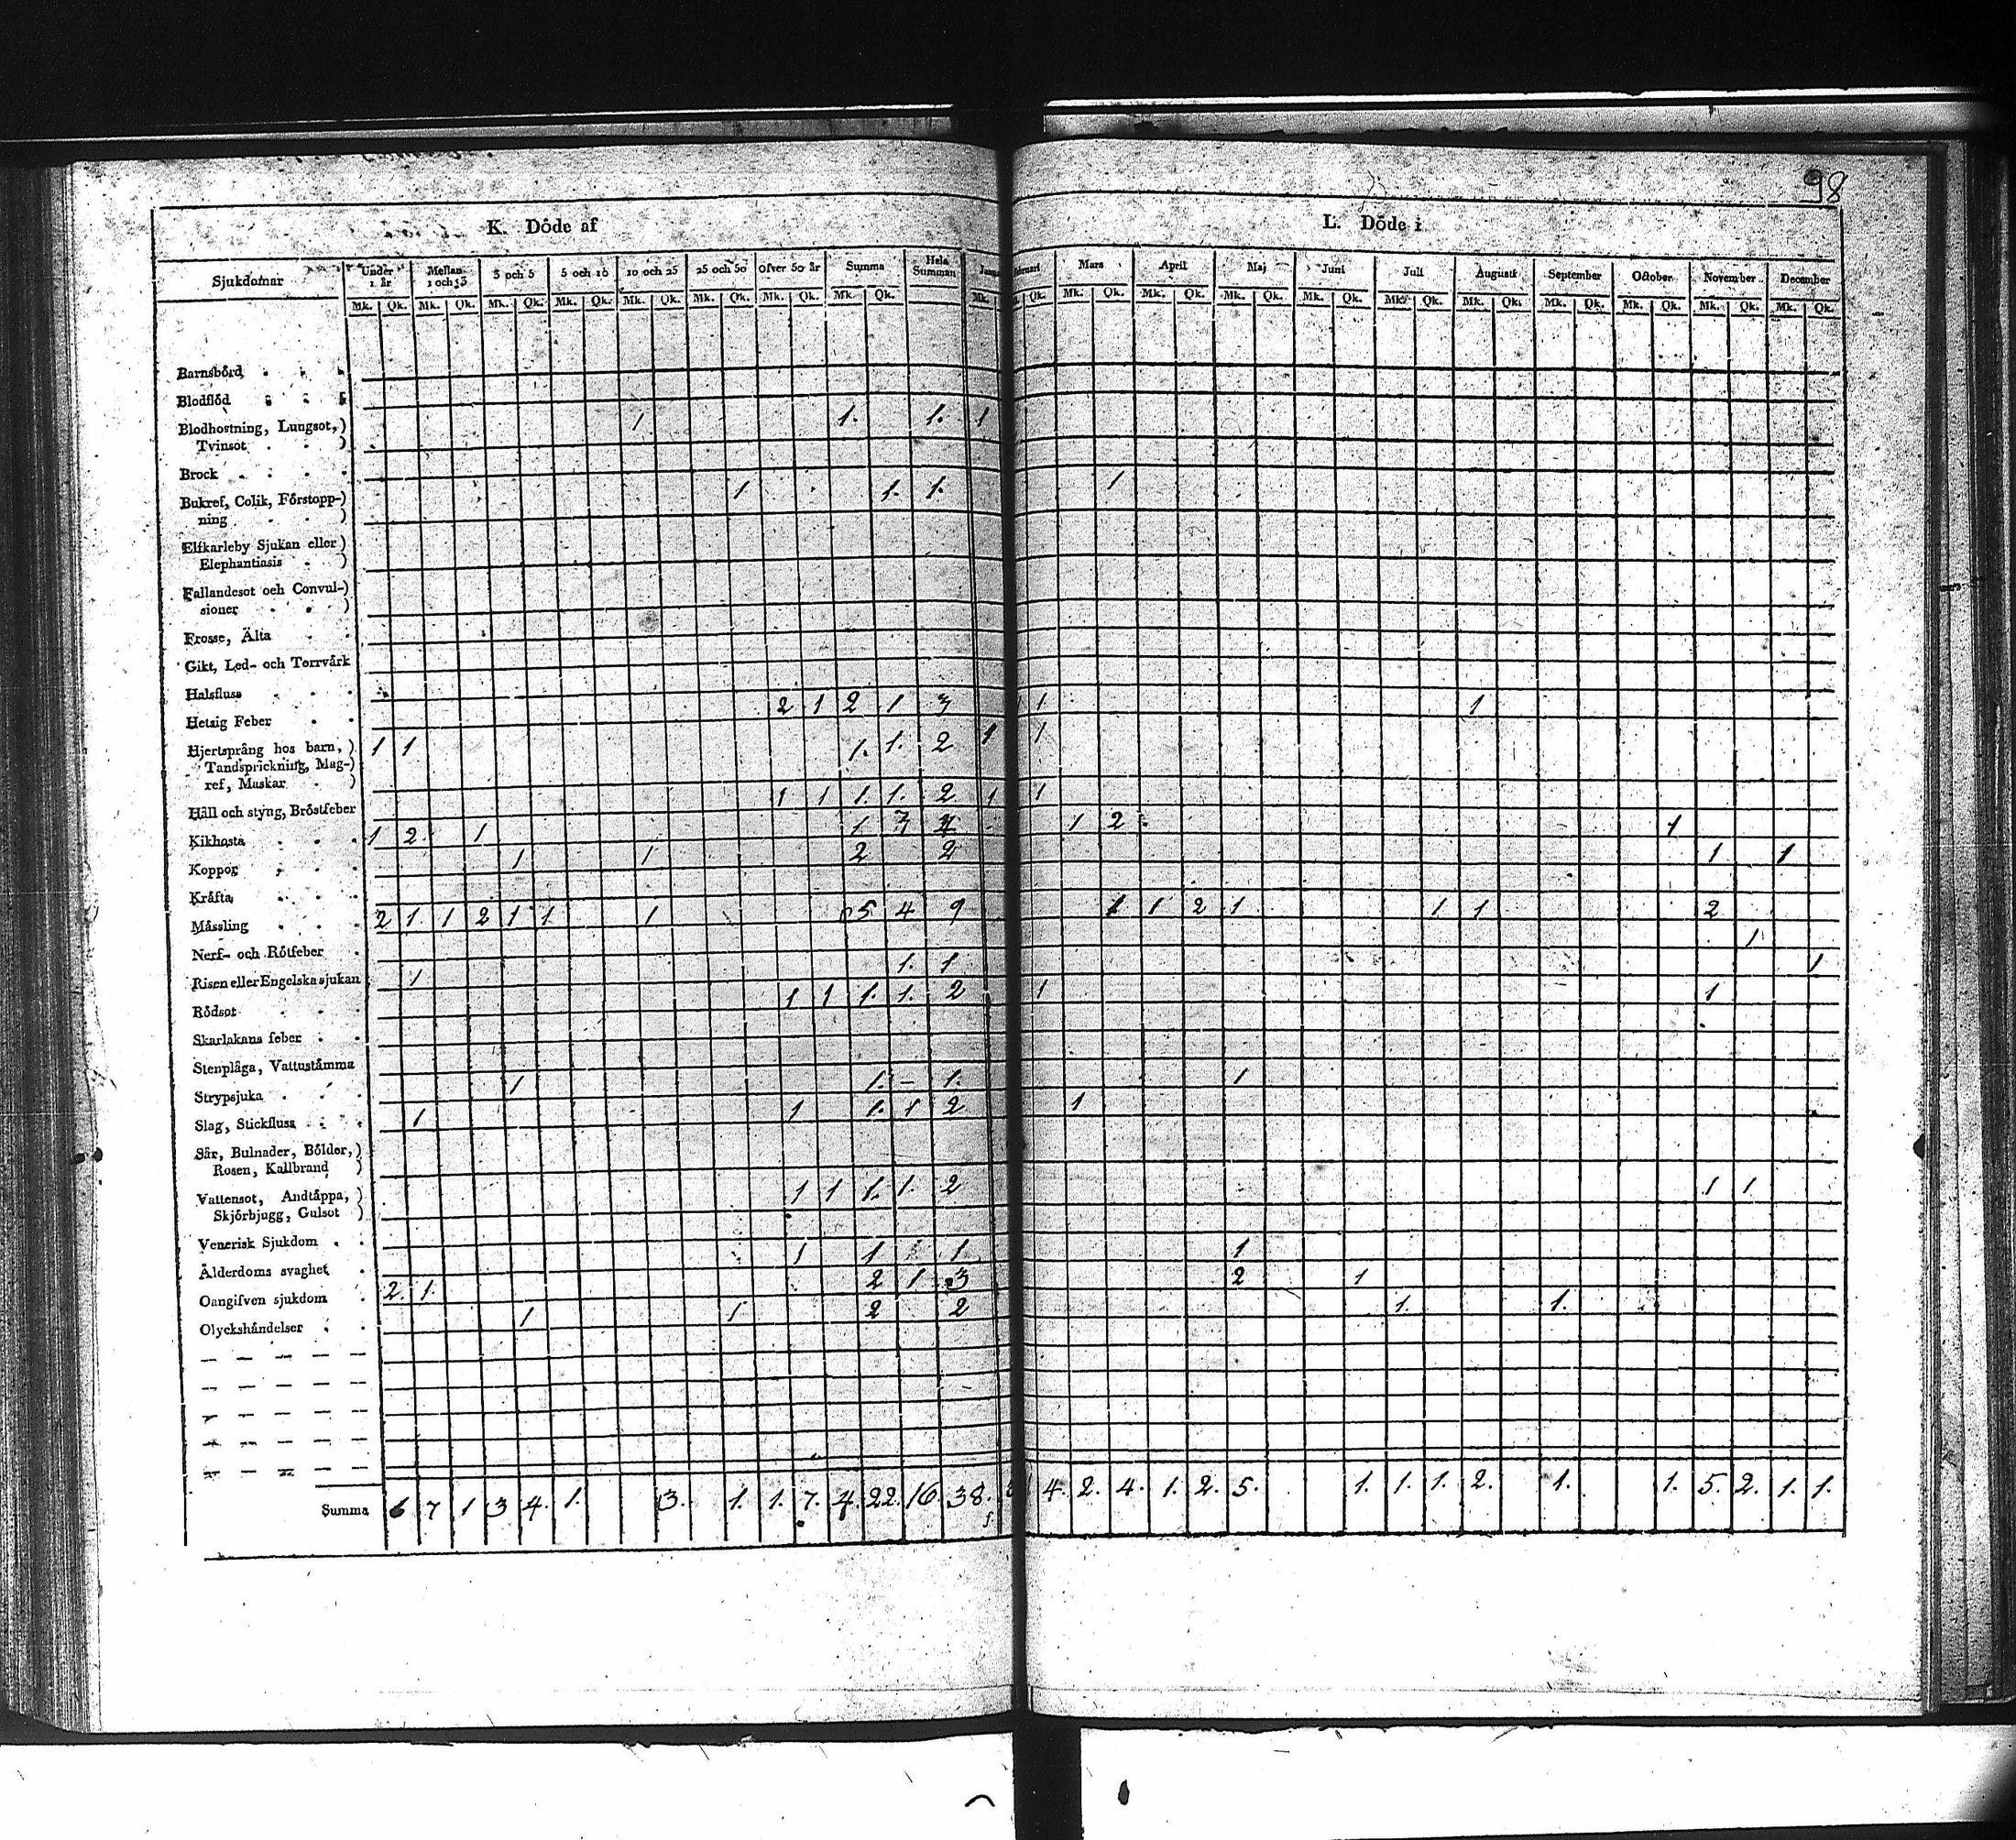 98
K. Döde af
L. Döde i
Sjukdomar Under 1 år Mellan 1 och 3 3 och 5 5 och 10 10 och 25 25 och 50 Öfver 50 år Summa Hela Summan Mars April Maj Juni Juli Augusti September October November December
Mk. Qk. Mk. Qk. Mk. Qk. Mk. Qk. Mk. Qk. Mk. Qk. Mk. Qk. Mk. Qk. Mk. Qk. Mk. Qk. Mk. Qk. Mk. Qk. Mk. Qk. Mk. Qk. Mk. Qk. Mk. Qk. Mk. Qk. Mk. Qk. Mk. Qk.
Barnsbörd
Blodflöd
Blodhostning, Lungsot,) 1 1. 1. 1
Tvinsot )
Brock
Bukref, Colik, Förstopp-) 1 1. 1. 1
ning )
Elfkarleby Sjukan eller)
Elephantiasis )
Fallandesot och Convul-)
sioner )
Frosse, Älta
Gikt, Led- och Torrvärk
Halsfluss
Hetsig Feber 2 1 2 1 3 1 1 1
Hjertsprång hos barn, ) 1 1 1. 1. 2 1 1
Tandsprickning, Mag-)
ref, Maskar )
Håll och styng, Bröstfeber 1 1 1. 1. 2 1 1
Kikhosta 1 2 1 1 3 4 1 2 1
Koppor 1 1 2 2 1 1
Kräfta
Mässling 2 1. 1 2 1 1 1 5 4 9 1 1 2 1 1 1 2
Nerf- och Rötfeber 1
Risen eller Engelska sjukan 1 1. 1 1
Rödsot 1 1 1. 1. 2 1 1
Skarlakans feber
Stenplåga, Vattustämma
Strypsjuka 1 1. – 1. 1
Slag, Stickfluss 1 1 1. 1 2 1
Sår, Bulnader, Bölder,)
Rosen, Kallbrand )
Vattensot, Andtäppa, ) 1 1 1. 1. 2 1 1
Skjörbjugg, Gulsot )
Venerisk Sjukdom
Ålderdoms svaghet 1 1 1 1
Oangifven sjukdom 2. 1. 2 1 3 2 1
Olyckshändelser 1 1 2 2 1. 1.
Summa 6 7 1 3 4. 1. 3. 1. 1. 7. 4. 22. 16. 38. 4. 2. 4. 1. 2. 5. 1. 1. 1. 2. 1. 1. 5. 2. 1. 1.